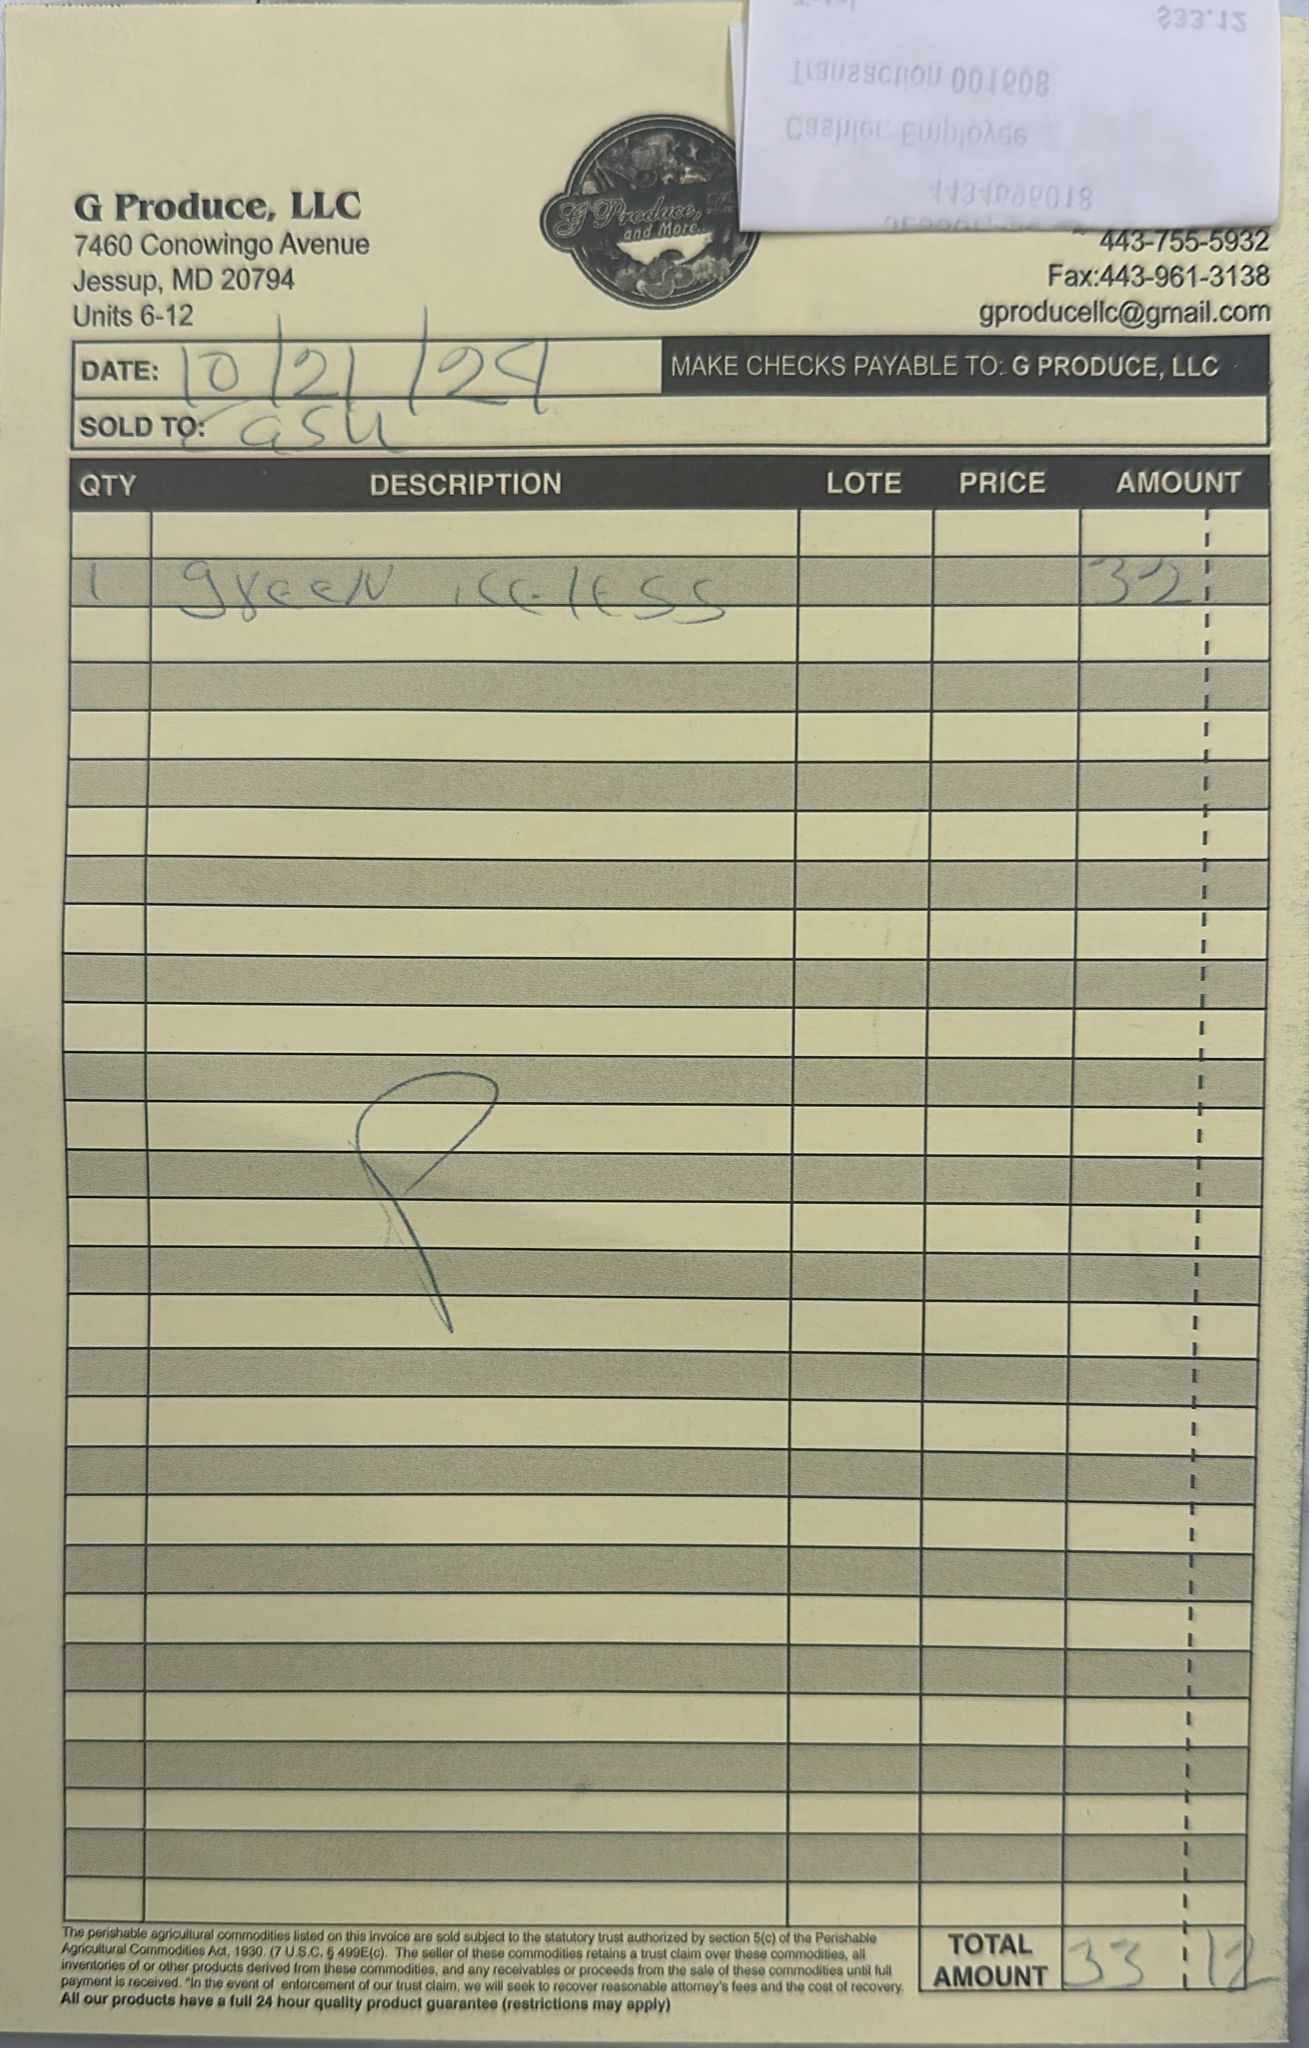 Total $33.12
Transaction 001608
Cashier: Employee
G Produce, LLC
and More..
G Produce, LLC
7460 Conowingo Avenue
Jessup, MD 20794
Units 6-12
443-755-5932
Fax:443-961-3138
gproducellc@gmail.com
DATE: 10/21/24
MAKE CHECKS PAYABLE TO: G PRODUCE, LLC
SOLD TO: Cash
QTY DESCRIPTION LOTE PRICE AMOUNT
1 green iceless 32
P
The perishable agricultural commodities listed on this invoice are sold subject to the statutory trust authorized by section 5(c) of the Perishable
Agricultural Commodities Act, 1930. (7 U.S.C. § 499E(c). The seller of these commodities retains a trust claim over these commodities, all
inventories of or other products derived from these commodities, and any receivables or proceeds from the sale of these commodities until full
payment is received. "In the event of enforcement of our trust claim, we will seek to recover reasonable attorney's fees and the cost of recovery.
All our products have a full 24 hour quality product guarantee (restrictions may apply)
TOTAL AMOUNT 33 12